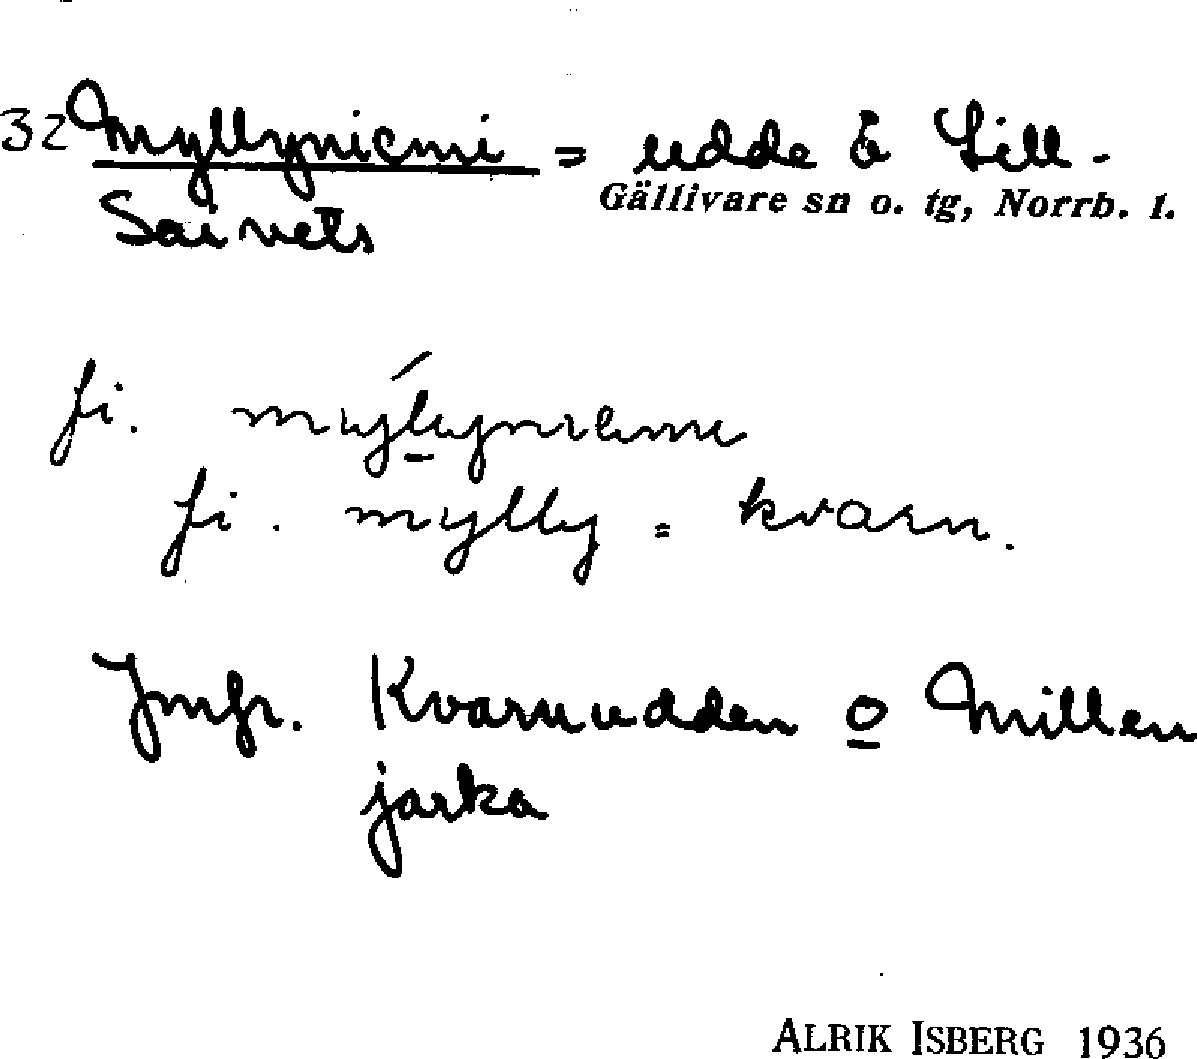 32 Myllyniemi = udde å Lill-
Gällivare sn o. tg, Norrb. l.
Saivets
fi. mýl̲yniemi
fi. mylly = kvarn.
Jmfr. Kvarnudden o̲ Millen
jarka
ALRIK ISBERG 1936